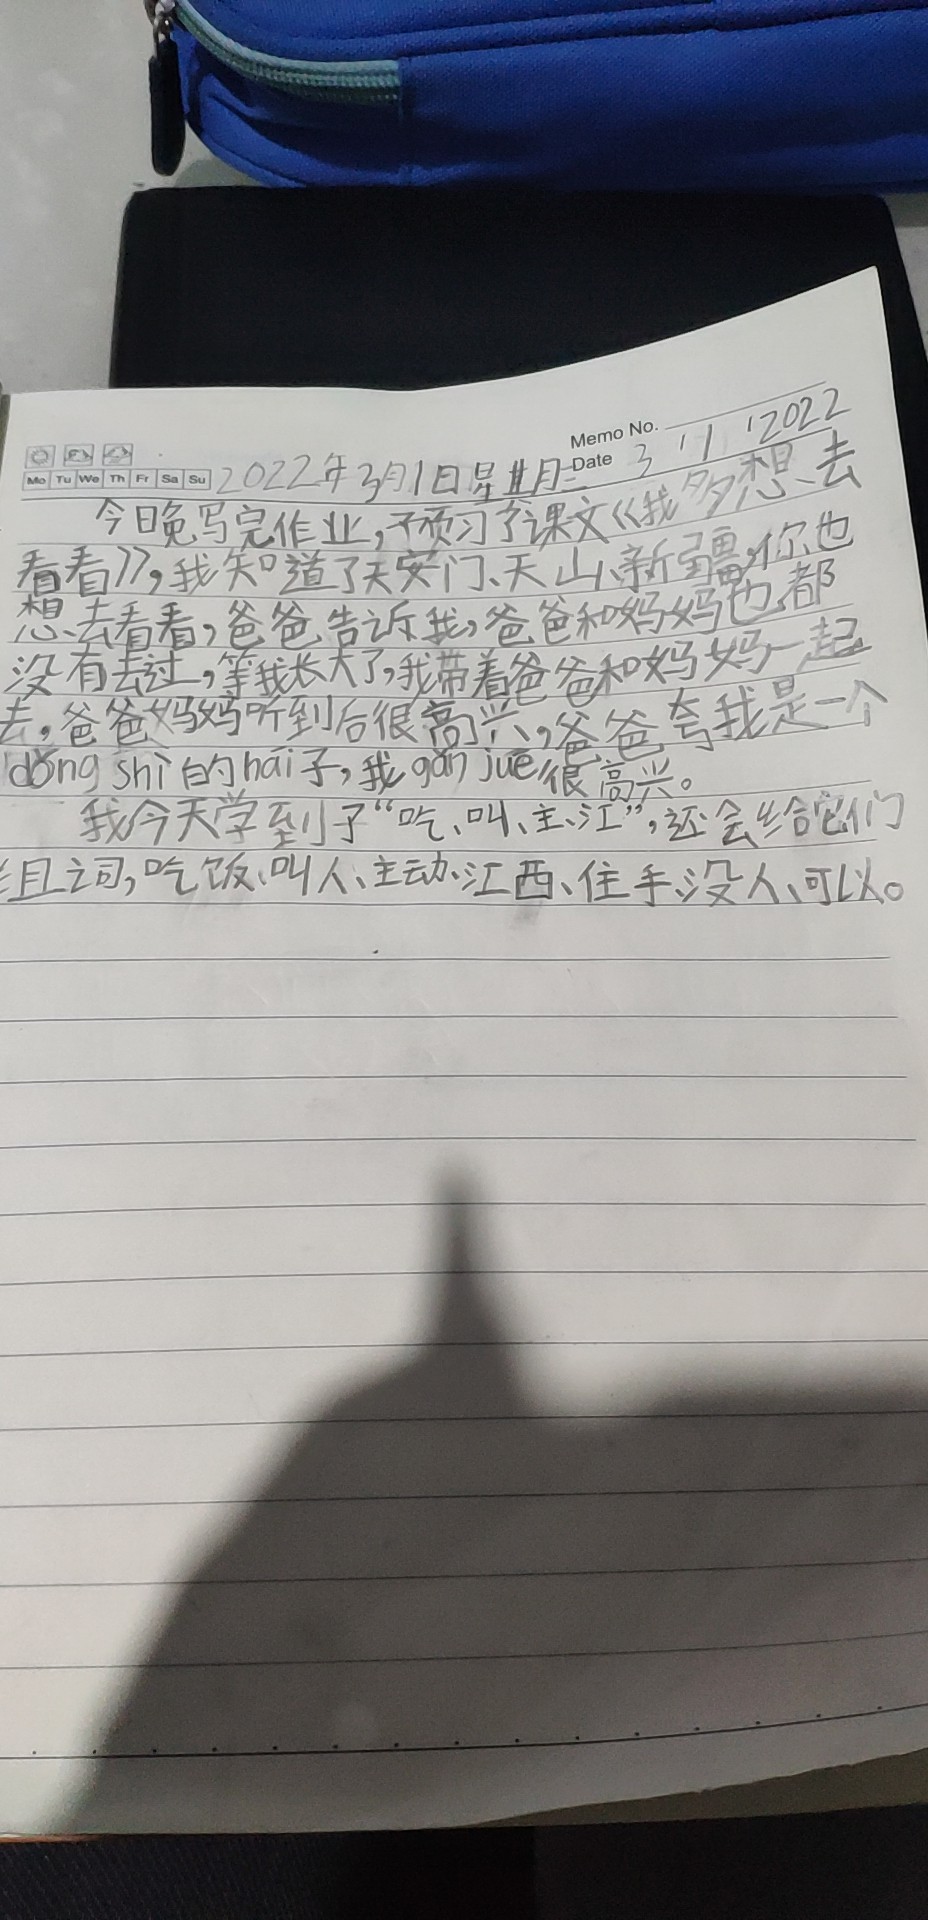 Memo No.
Mo Tu We Th Fr Sa Su
Date 3 1 2022
2022年3月1日星期二
今日晚写完作业,预习了课文《我多想去
看看》,我知道了天安门、天山、新疆,你也
想去看看,爸爸告诉我,爸爸和妈妈也都
没有去过,等我长大了,我带着爸爸和妈妈一起
去,爸爸妈妈听到后很高兴,爸爸夸我是一个
dǒng shì的hái子,我gǎn jué很高兴。
我今天学到了“吃、叫、主、江”,还会给它们
组词,吃饭、叫人、主动、江西、住手、没人、可以。